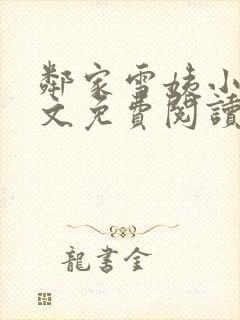 鄰家雪姨小
文免費閱讀
龍書金